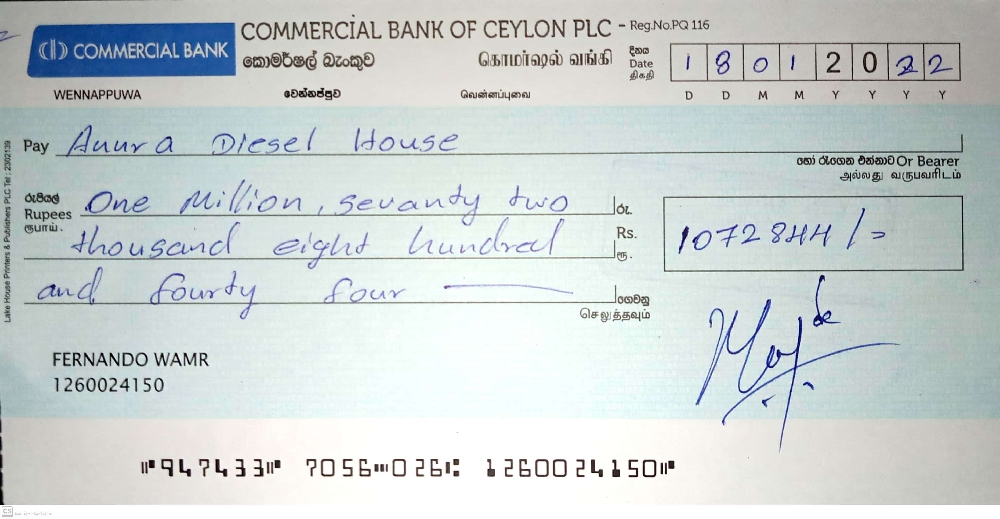 COMMERCIAL BANK
COMMERCIAL BANK OF CEYLON PLC - Reg.No.PQ 116
කොමර්ෂල් බැංකුව கொமர்ஷல் வங்கி
දිනය
Date
திகதி
1 8 0 1 2 0 2 2
D D M M Y Y Y Y
WENNAPPUWA වෙන්නප්පුව வென்னப்புவை
Pay Anura Diesel House
හෝ රැගෙන එන්නාට Or Bearer
அல்லது வருபவரிடம்
රුපියල්
Rupees
ரூபாய்.
One Million, sevanty two
thousand eight hundred
and fourty four
රු.
Rs.
ரூ.
1072844/=
ගෙවනු
செலுத்தவும்
Lake House Printers & Publishers PLC Tel : 2302139
FERNANDO WAMR
1260024150
⑈947433⑈ 7056⑉026⑆ 1260024150⑈
CS